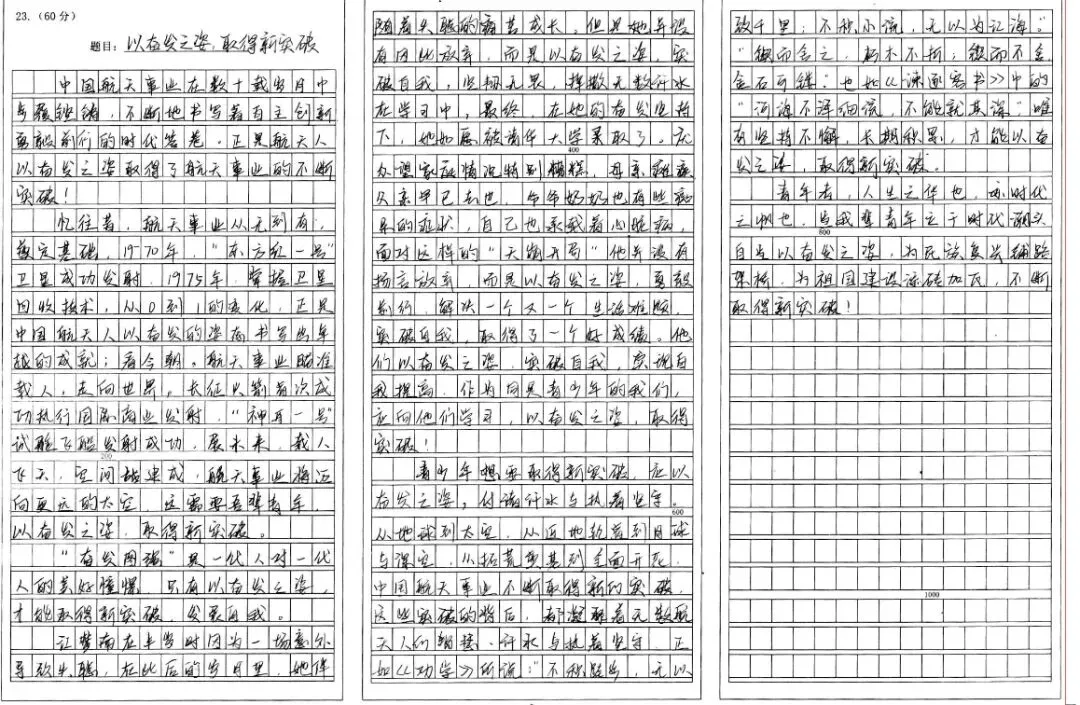 23.(60分)
题目：以奋发之姿，取得新突破
中国航天事业在数十载岁月中
步履铿锵，不断地书写着自主创新
勇毅前行的时代答卷。正是航天人
以奋发之姿取得了航天事业的不断
突破！
忆往昔，航天事业从无到有，
奠定基础，1970年，“东方红一号”
卫星成功发射，1975年，掌握卫星
回收技术，从0到1的进化，正是
中国航天人以奋发的姿态书写出卓
越的成就；看今朝，航天事业瞄准
载人，走向世界。长征火箭首次成
功执行国际商业发射，“神舟一号”
试验飞船发射成功，展未来，载人
飞天，空间站建成，航天事业将迈
向更远的太空，这需要吾辈青年，
200
以奋发之姿，取得新突破。
“奋发图强”是一代人对一代
人的美好憧憬，只有以奋发之姿，
才能取得新突破，发展自我。
江梦南在半岁时因为一场意外
导致失聪，在此后的岁月里，她伴
随着失聪的痛苦成长。但是她并没
有因此放弃，而是以奋发之姿，突
破自我，坚韧无畏，挥散无数汗水
在学习中，最终，在她的奋发坚持
下，她如愿被清华大学录取了。庞
400
众望家庭情况特别糟糕，母亲瘫痪
父亲早已去世，爷爷奶奶也有些疾
身的症状，自己也承载着心脏病，
面对这样的“天崩开局”他并没有
扬言放弃，而是以奋发之姿，勇毅
前行，解决一个又一个生活难题，
突破自我，取得了一个好成绩。他
们以奋发之姿，突破自我，实现自
我提高，作为同是青少年的我们，
应向他们学习，以奋发之姿，取得
突破！
青少年想要取得新突破，应以
奋发之姿，付诸汗水与执着坚守。
600
从地球到太空，从近地轨道到月球
与深空，从拓荒奠基到全面开花，
中国航天事业不断取得新的突破，
这些突破的背后，都凝聚着无数航
天人们的汗水与执着坚守，正
如《劝学》所说：“不积跬步，无以
致千里；不积小流，无以为江海。”
“锲而舍之，朽木不折；锲而不舍，
金石可镂。”也如《谏逐客书》中的
“河海不择细流，不能就其深”唯
有坚持不懈，长期积累，才能以奋
发之姿，取得新突破。
青年者，人生之华也，亦时代
之也，当我辈青年立于时代潮头
800
自当以奋发之姿，为民族复兴铺路
架桥，为祖国建设添砖加瓦，不断
取得新突破！
1000